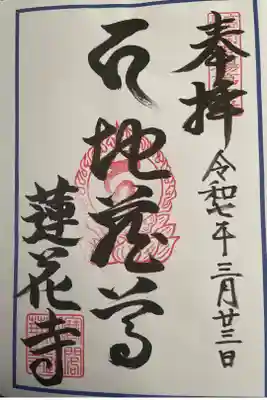 奉拝
令和七年三月廿三日
石地蔵尊
蓮花寺